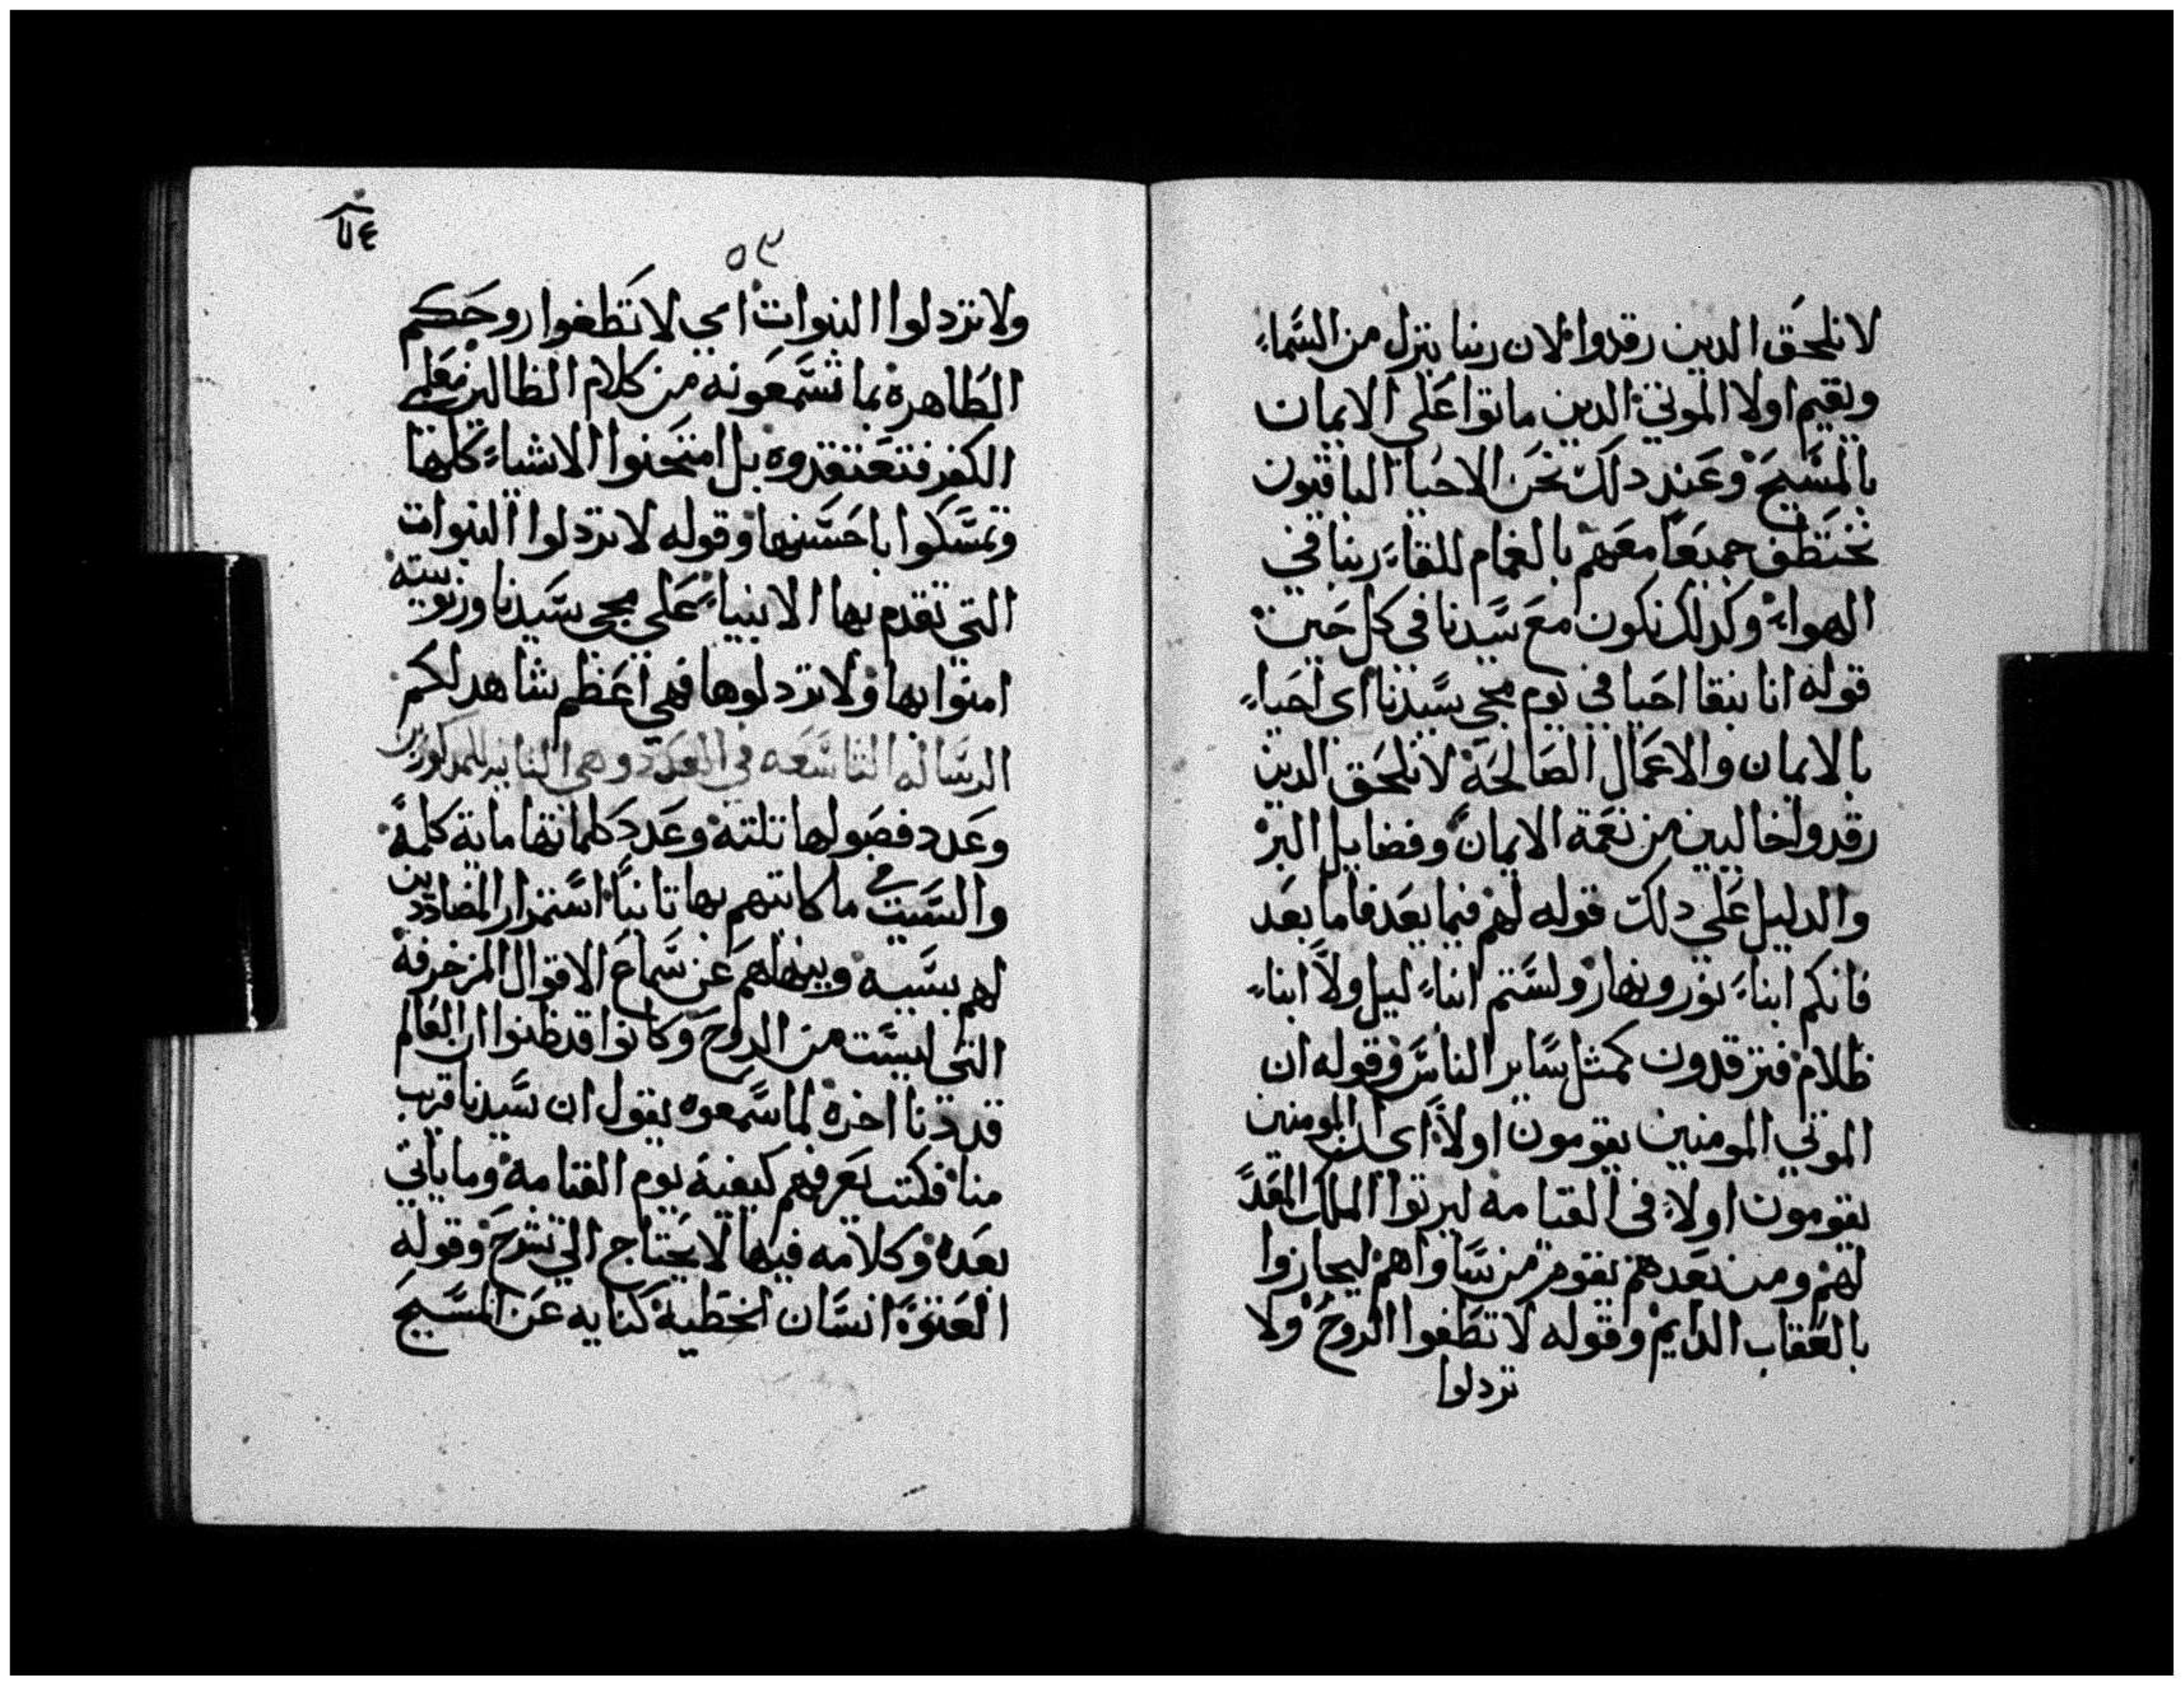 لانلحق الدين رقدوا لان ربنا ينزل من السماء
ويقيم اولا الموتي الدين ماتوا علي الايمان
بالمسيح وعند دلك نحن الاحيا الباقيون
نختطف جميعا معهم بالغمام للقاء ربنا في
الهواء وكدلك نكون مع سيدنا في كل حين
قوله انا نبقا احيا في يوم مجي سيدنا اي احياء
بالايمان والاعمال الصالحة لانلحق الدين
رقدوا خاليين من نعمة الايمان وفضايل البر
والدليل علي دلك قوله لهم فيما بعد فاما بعد
فانكم ابناء نور ونهار ولستم ابناء ليل ولا ابناء
ظلام فترقدون كمثل ساير الناس وقوله ان
الموتي المومنين يقومون اولا اي ان المومنين
يقومون اولا في القيامة ليرتوا الملك المعد
لهم ومن بعدهم يقوم من ساواهم ليجازوا
بالعقاب الدايم وقوله لا تطفوا الروح ولا
تردلوا
٥٣
ولا تردلوا النبوات اي لا تطفوا روحكم
الطاهرة بما تسمعونه من كلام الظالين معلمي
الكفر فتعتقدوه بل امتحنوا الاشياء كلها
وتمسكوا باحسنها وقوله لا تردلوا النبوات
التي تقدم بها الانبياء علي مجي سيدنا وربوبيته
امنوا بها ولا تردلوها فهي اعظم شاهد لكم
الرسالة التاسعه في العدد وهي التانيه
وعدد فصولها تلتة وعدد كلماتها ماية كلمة
والسبب في ما كاتبهم بها تانيا استمرار المضاددين
لهم بسببه وينهاهم عن سماع الاقوال المزخرفة
التي ليست من الروح وكانوا قد ظنوا ان العالم
قد دنا اخره لما سمعوه يقول ان سيدنا قريب
منا فكتب يعرفهم كيفية يوم القيامة وما ياتي
بعده وكلامه فيها لا يحتاج الي شرح وقوله
العتوة انسان الخطية كنايه عن المسيح